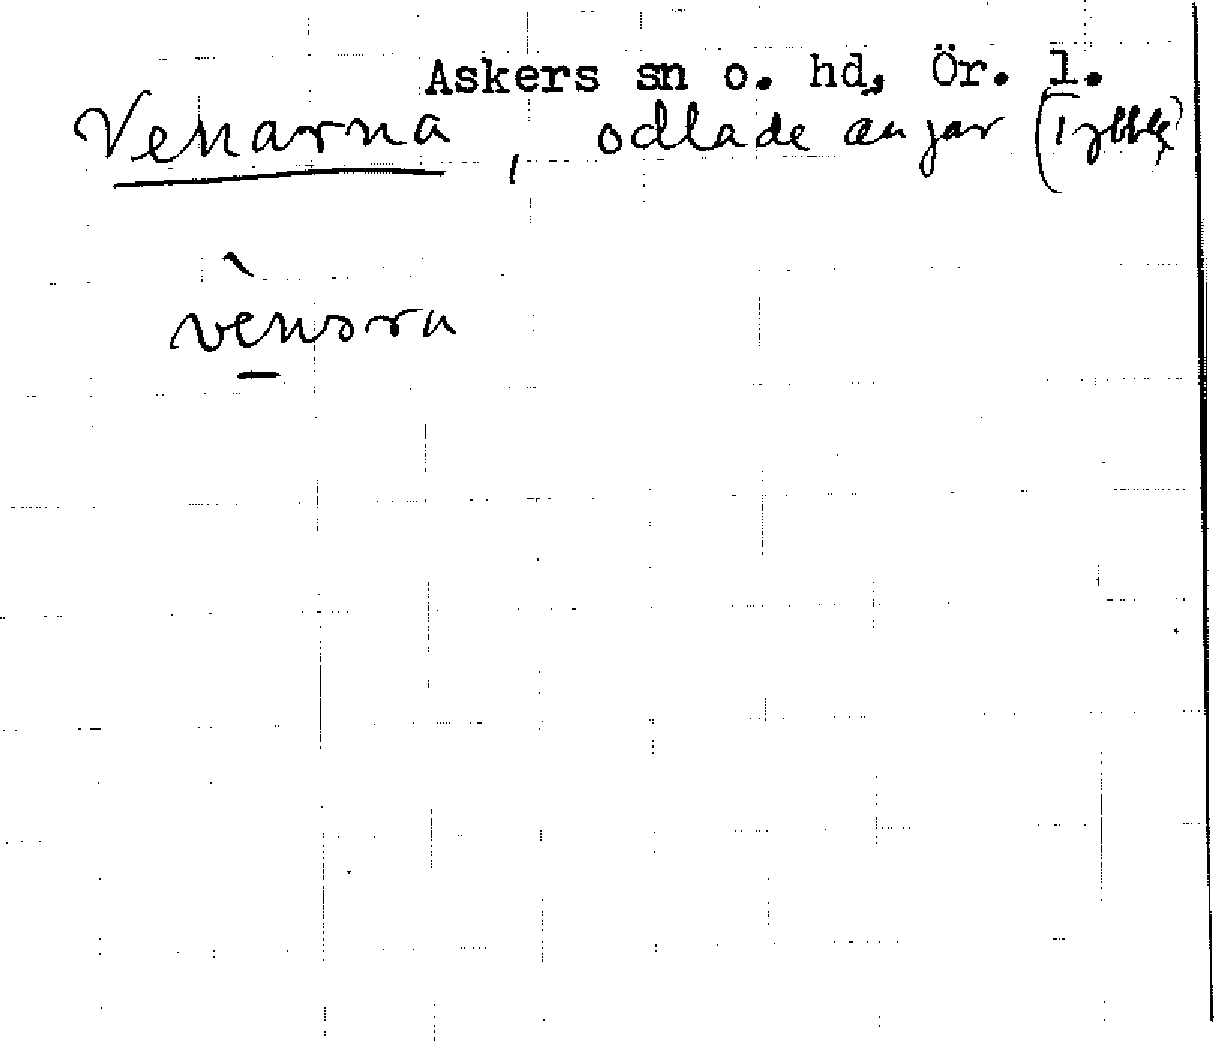 Askers sn o. hd, Ör. l.
Venarna, odlade ängar
vènωra